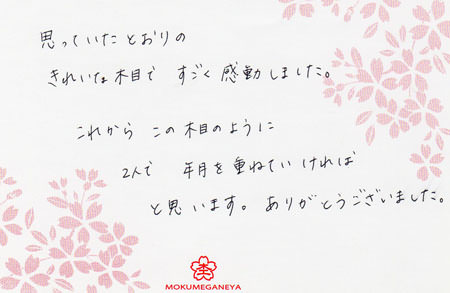 思っていたとおりの
きれいな木目で すごく感動しました。
これから この木目のように
2人で 年月を重ねていければ
と思います。ありがとうございました。
MOKUMEGANEYA